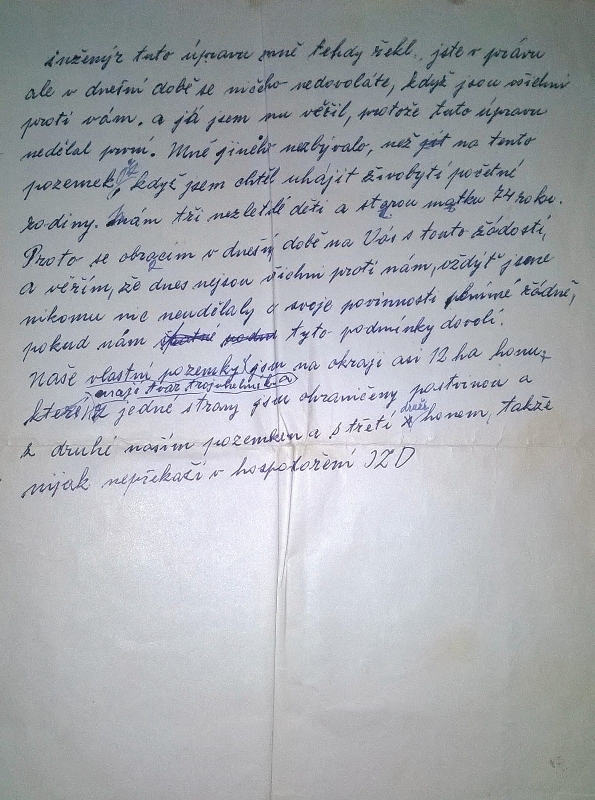 inženýr tuto úpravu mně tehdy řekl, jste v právu
ale v dnešní době se ničeho nedovoláte, když jsou všichni
proti vám. a já jsem mu věřil, protože tuto úpravu
nedělal první. Mně jiného nezbývalo, než jít na tento
pozemek, když jsem chtěl uhájit živobytí početné
rodiny. Mám tři nezletilé děti a starou matku 74 roků.
Proto se obracím v dnešní době na Vás s touto žádostí,
a věřím, že dnes nejsou všichni proti nám, vždyť jsme
nikomu nic neudělaly a svoje povinnosti plníme řádně,
pokud nám špatné tyto podmínky dovolí.
Naše vlastní pozemky jsou na okraji asi 12 ha honu,
mají tvar trojuhelníka
které z jedné strany jsou ohraničeny pastvinou a
z druhé naším pozemkem a s třetí druž. honem, takže
nijak nepřekáží v hospodoření JZD